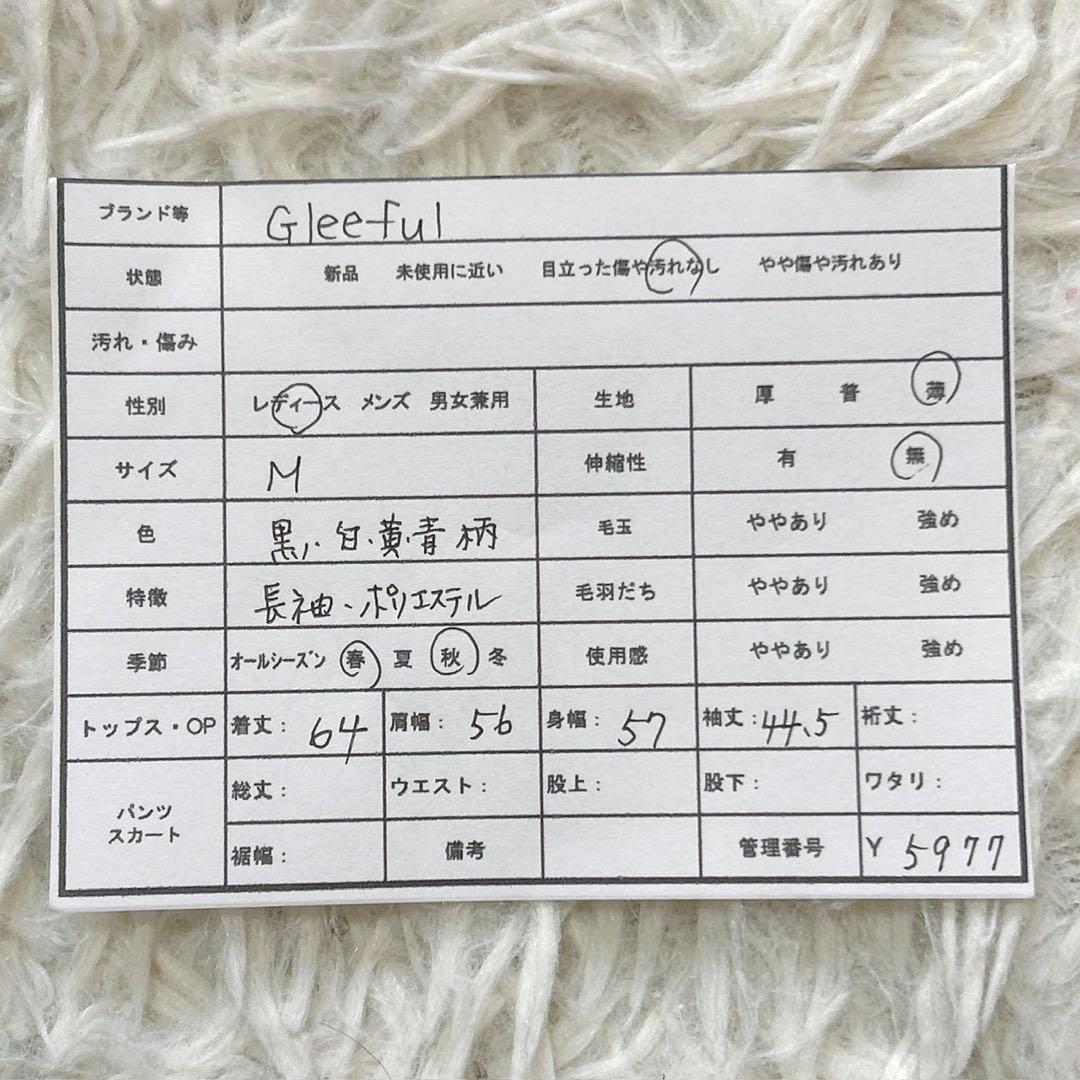 ブランド等 Gleeful
状態 新品 未使用に近い 目立った傷や汚れなし やや傷や汚れあり
汚れ・傷み
性別 レディース メンズ 男女兼用 生地 厚 普 薄
サイズ M 伸縮性 有 無
色 黒、白、黄、青柄 毛玉 ややあり 強め
特徴 長袖、ポリエステル 毛羽だち ややあり 強め
季節 オールシーズン 春 夏 秋 冬 使用感 ややあり 強め
トップス・OP 着丈: 64 肩幅: 56 身幅: 57 袖丈: 44.5 裄丈:
パンツ
スカート
総丈: ウエスト: 股上: 股下: ワタリ:
裾幅: 備考 管理番号 Y 5977